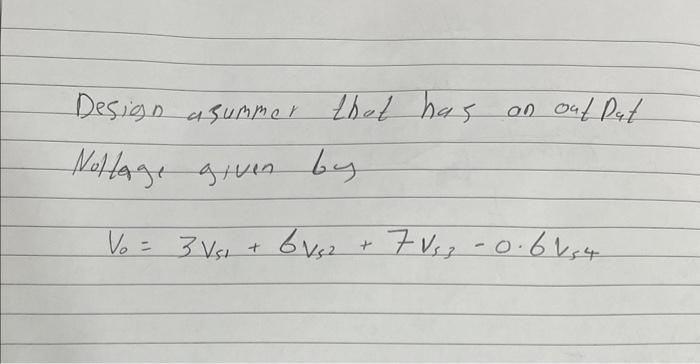 Design a summer that has an output
Voltage given by
Vo = 3Vs1 + 6Vs2 + 7Vs3 - 0.6Vs4